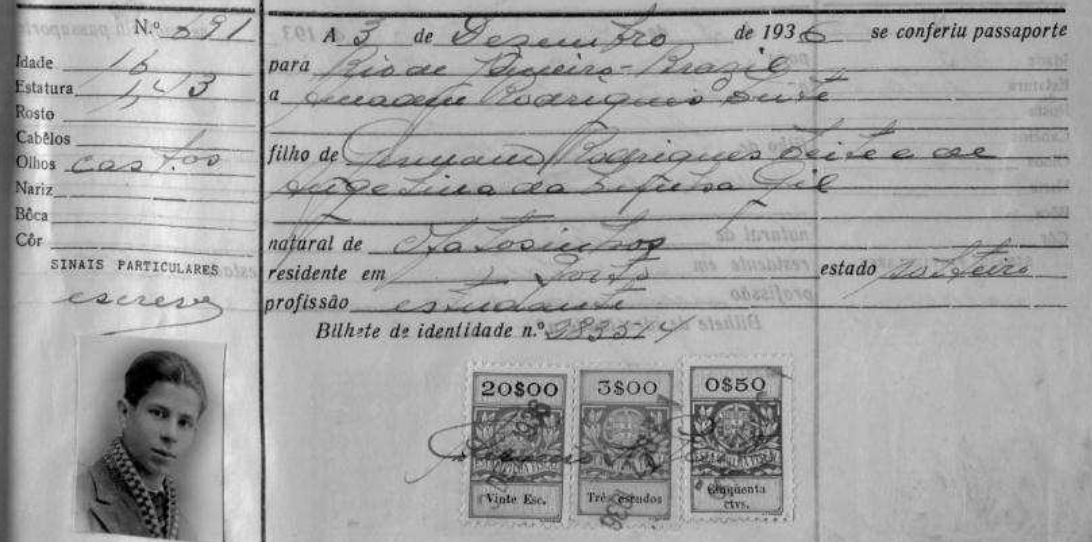 N.º 691
Idade 16
Estatura 1,43
Rosto
Cabêlos
Olhos cast.os
Nariz
Bôca
Côr
SINAIS PARTICULARES
escreve
A 3 de Dezembro de 1936 se conferiu passaporte
para Rio de Janeiro - Brazil
a Rodrigues Leite
filho de Germano Rodrigues Leite e de
Angelina da Gil
natural de Matosinhos
residente em Porto estado solteiro
profissão estudante
Bilhete de identidade n.º
20$00 3$00 0$50
Vinte Esc. Três escudos Cinqüenta ctvs.